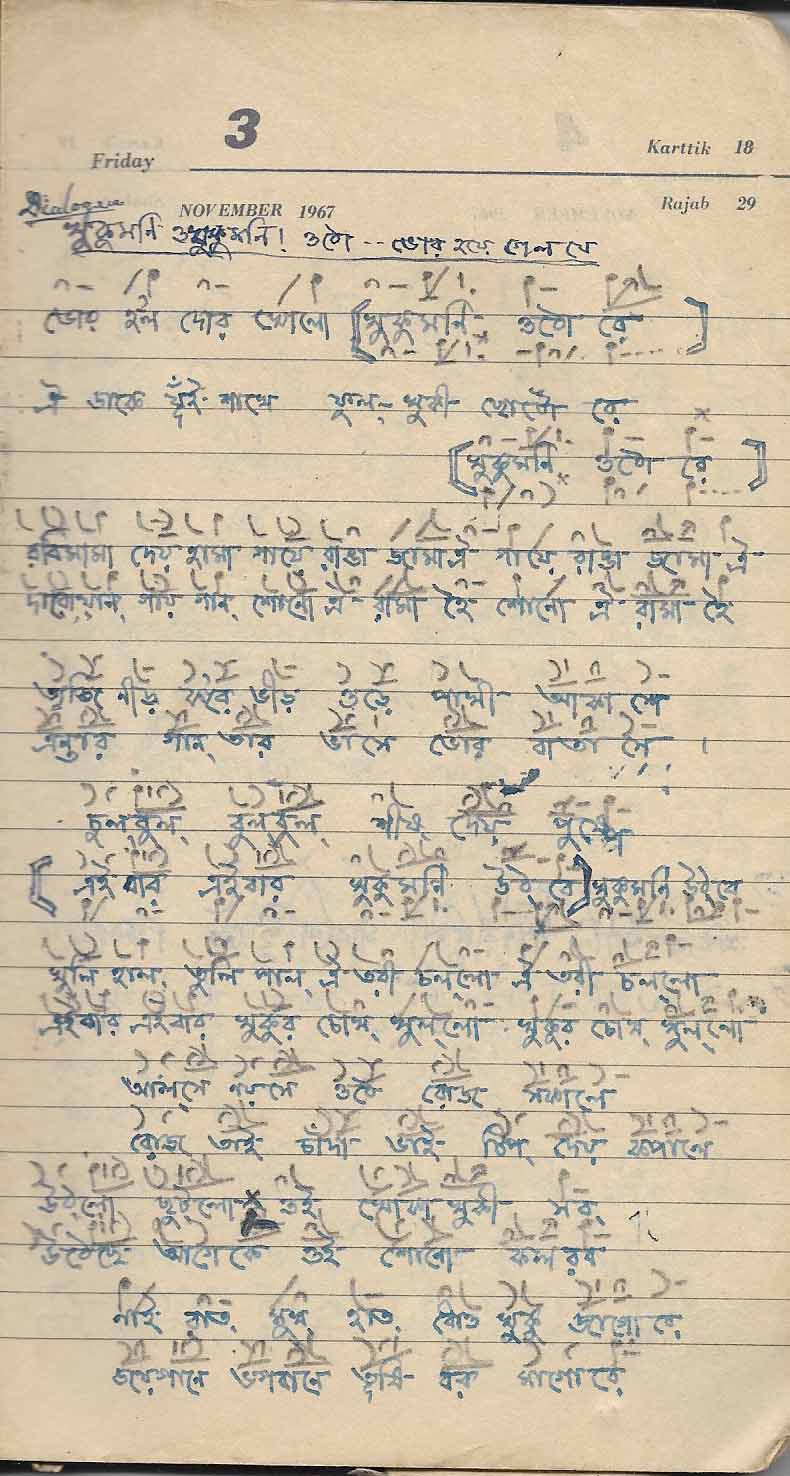 3
Friday
Karttik 18
NOVEMBER 1967
Rajab 29
Dialogue
খুকুমনি ও খুকুমনি! ওঠো -- ভোর হয়ে গেল যে
ভোর হল দোর খোলো [খুকুমনি ওঠো রে]
ঐ ডাকে যুঁই শাখে ফুল-খুকী ছোটো রে
[খুকুমনি ওঠো রে]
রবিমামা দেয় হামা গায়ে রাঙা জামা ঐ গায়ে রাঙা জামা ঐ
দারোয়ান্ গায় গান্ শোনো ঐ রামা হৈ শোনো ঐ রামা হৈ
ত্যজি নীড় করে ভীড় ওড়ে পাখী আকাশে
এন্তার গান্ তার ভাসে ভোর বাতাসে।
চুলবুল্ বুলবুল্ শীষ্ দেয় পুষ্পে
[এইবার এইবার খুকুমনি উঠবে] খুকুমনি উঠবে
খুলি হাল্ তুলি পাল্ ঐ তরী চল্‌লো ঐ তরী চল্‌লো
এইবার এইবার খুকুর চোখ্ খুল্‌লো খুকুর চোখ্ খুল্‌লো
আলসে নয় সে ওঠে রোজ সকালে
রোজ তাই চাঁদা ভাই টিপ্ দেয় কপালে
উঠ্‌লো ছুটলো ওই খোকা খুকী সব্
উঠেছে আগে কে ওই শোনো কলরব
নাই রাত্ মুখ্ হাত্ ধোও খুকু জাগো রে
জয়গানে ভগবানে তুষি বর মাগো রে